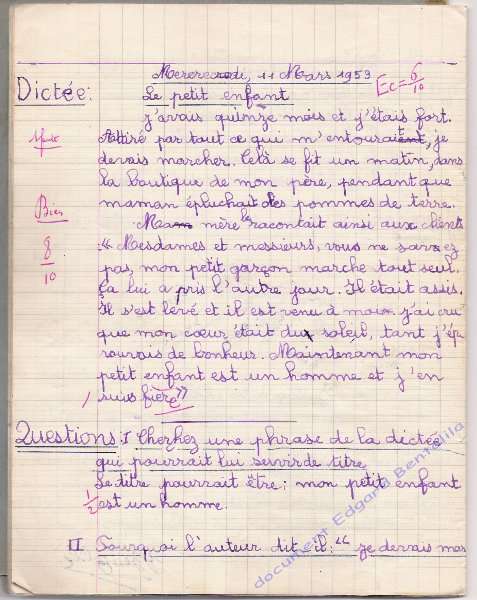 Mercredi, 11 Mars 1953
Ec = 6/10
Dictée:
Le petit enfant
j'avais quinze mois et j'étais fort.
1 faute
Attiré par tout ce qui m'entourait, je
devais marcher. Celà se fit un matin, dans
la boutique de mon père, pendant que
maman épluchait des pommes de terre.
Bien
Ma mère le racontait ainsi aux clients
8/10
"Mesdames et messieurs, vous ne savez
pas, mon petit garçon marche tout seul.
Ça lui a pris l'autre jour. Il était assis.
Il s'est levé et il est venu à moi j'ai cru
que mon cœur était du soleil, tant j'ép
rouvais de bonheur. Maintenant mon
petit enfant est un homme et j'en
suis fière"
Questions: I Cherchez une phrase de la dictée
qui pourrait lui servir de titre
Le titre pourrait être: mon petit enfant
1/2
est un homme.
II Pourquoi l'auteur dit il: "je devais mar
document Edgard Bentolila